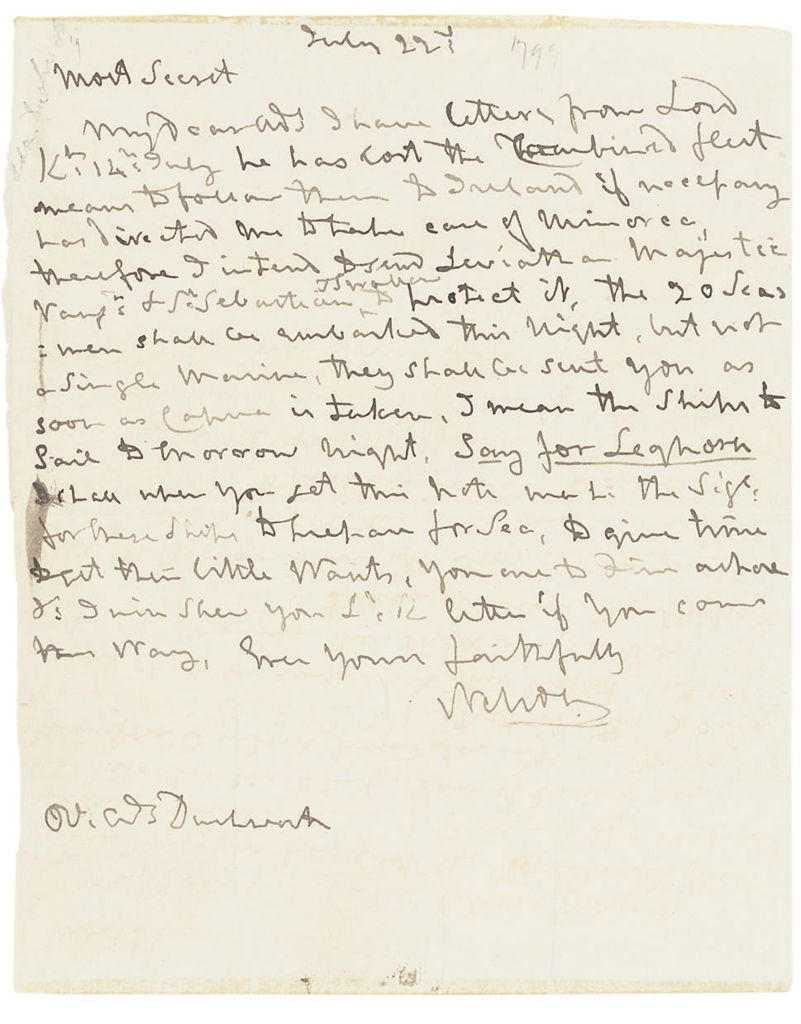 July 22d 1799
Most Secret
My Dear Adl I have letters from Lord
Kh: 14th: July he has lost the Combined fleet
means to follow them to Ireland if necessary
has directed me to take care of Minorca,
therefore I intend to send Leviathan Majestic
Vangd & St. Sebastian & Swallow to protect it, the 20 Seas
: men shall be embarked this Night, but not
a Single Marine, they shall be sent You as
soon as Capua is taken, I mean the Ships to
Sail to Morrow Night, Say for Leghorn
I shall when You get this Note make the Sigl:
for these Ships to prepare for Sea, to give time
to get their little Wants, You are to dine ashore
I will shew You Ld: K letter if You come
this Way, Ever Yours faithfully
Nelson
Adl Duckworth